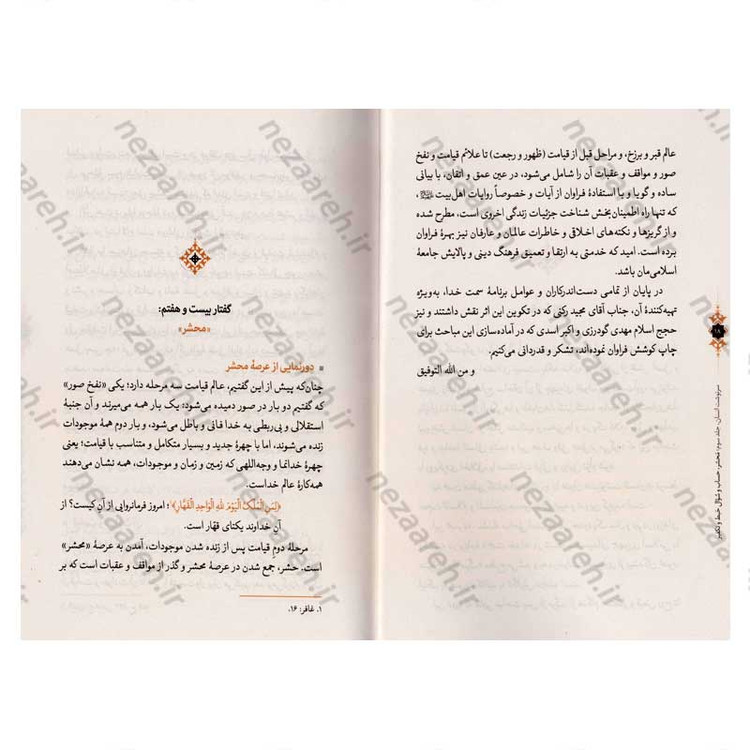 عالم قبر و برزخ، و مراحل قبل از قیامت (ظهور و رجعت) تا علائم قیامت و نفخ
صور و مواقف و عقبات آن را شامل می‌شود، در عین عمق و اتقان، با بیانی
ساده و گویا و با استفادهٔ فراوان از آیات و خصوصاً روایات اهل‌بیت،
که تنها راه اطمینان‌بخش شناخت جزئیات زندگی اخروی است، مطرح شده
و از گریزها و نکته‌های اخلاقی و خاطرات عالمان و عارفان نیز بهرهٔ فراوان
برده است. امید که خدمتی به ارتقا و تعمیق فرهنگ دینی و پالایش جامعهٔ
اسلامی‌مان باشد.
در پایان از تمامی دست‌اندرکاران و عوامل برنامهٔ سمت خدا، به‌ویژه
تهیه‌کنندهٔ آن، جناب آقای مجید رکنی که در تکوین این اثر نقش داشتند و نیز
حجج اسلام مهدی گودرزی و اکبر اسدی که در آماده‌سازی این مباحث برای
چاپ کوشش فراوان نموده‌اند، تشکر و قدردانی می‌کنیم.
و من الله التوفیق
سرنوشت انسان، جلد سوم: محشر، حساب و سؤال، حبط و تکفیر
گفتار بیست و هفتم:
«محشر»
دورنمایی از عرصهٔ محشر
چنان‌که پیش از این گفتیم، عالم قیامت سه مرحله دارد؛ یکی «نفخ صور»
که گفتیم دو بار در صور دمیده می‌شود؛ یک بار همه می‌میرند و آن جنبهٔ
استقلالی و بی‌ربطی به خدا فانی و باطل می‌شود، و بار دوم همهٔ موجودات
زنده می‌شوند، اما با چهرهٔ جدید و بسیار متکامل و متناسب با قیامت؛ یعنی
چهرهٔ خدانما و وجه‌اللهی که زمین و زمان و موجودات، همه نشان می‌دهند
همه‌کارهٔ عالم خداست.
﴿لِمَنِ الْمُلْكُ الْيَوْمَ لِلَّهِ الْوَاحِدِ الْقَهَّارِ﴾۱؛ امروز فرمانروایی از آن کیست؟ از
آن خداوند یکتای قهّار است.
مرحلهٔ دوم قیامت پس از زنده شدن موجودات، آمدن به عرصهٔ «محشر»
است. حشر، جمع شدن در عرصهٔ محشر و گذر از مواقف و عقبات است که بر
۱. غافر: ۱۶.
nezaareh.ir